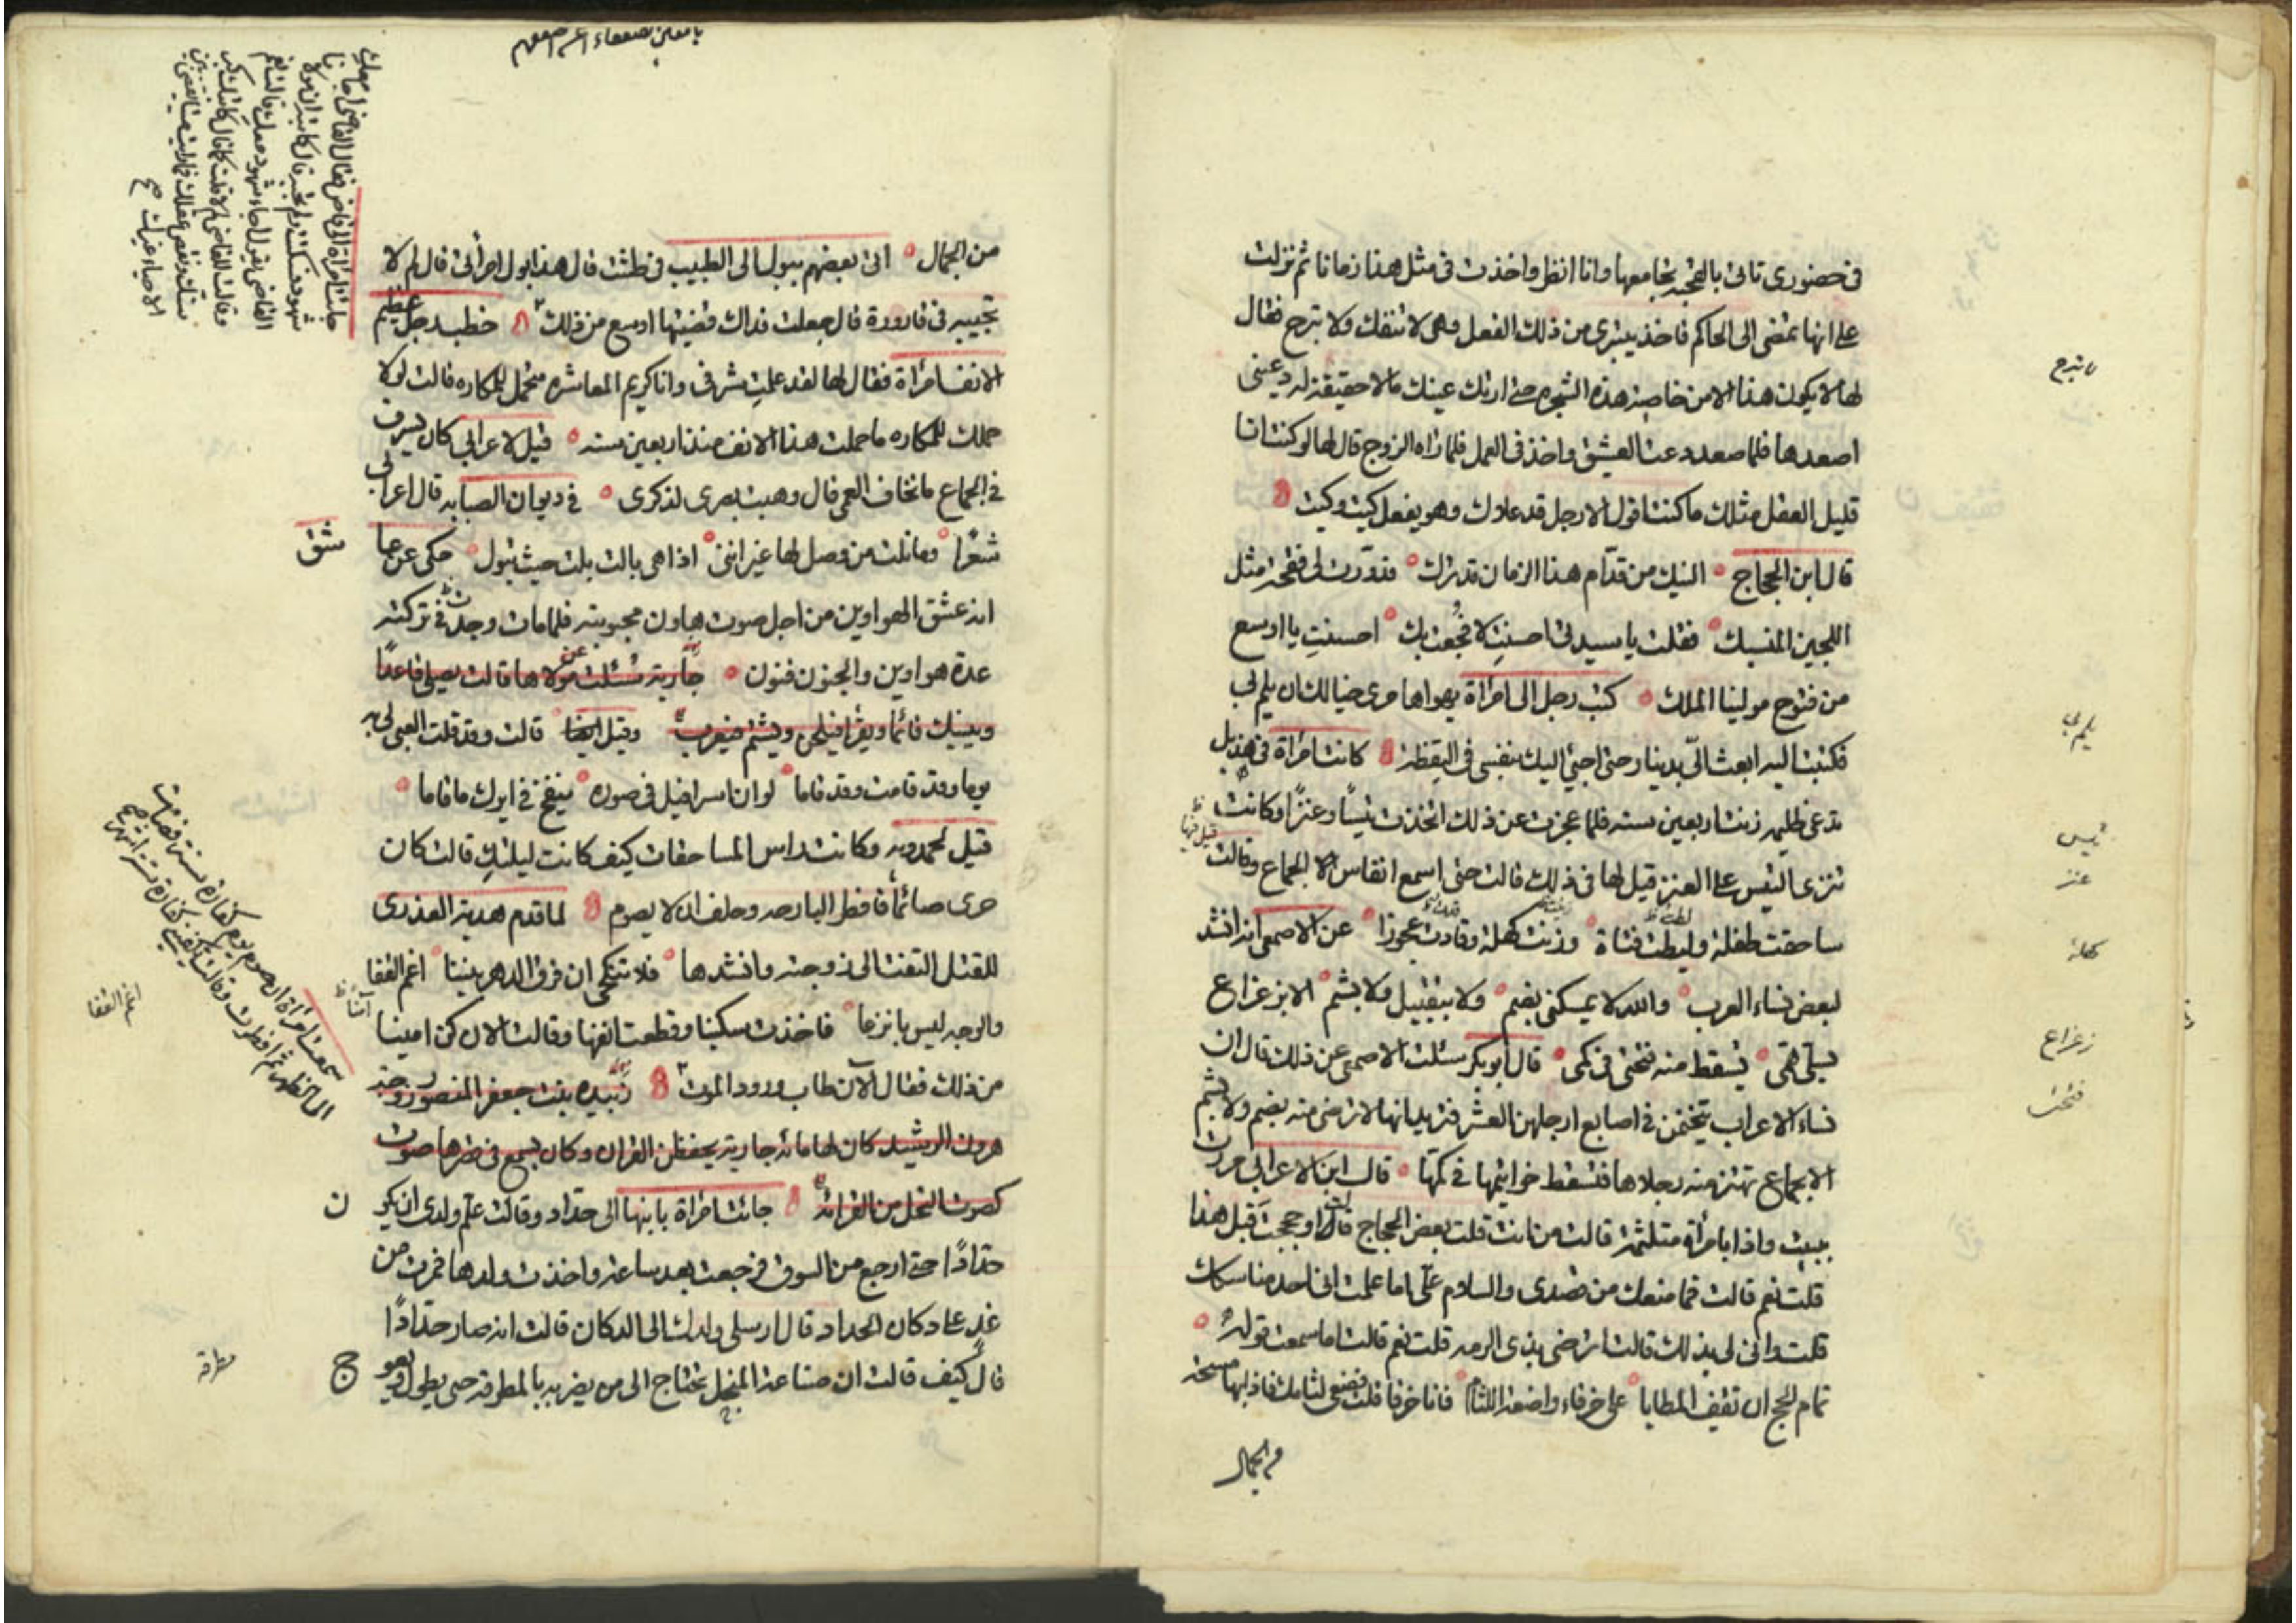 في حضوري تاتي بالقحبه تجامعها وانا انظر واخذت في مثل هذا زمانا ثم نزلت
على انها تمضى الى الحاكم فاخذ يتبرى من ذلك الفعل وهي لا تنفك ولا تبرح فقال
لها لا يكون هذا الا من خاصية هذه الشجرة حتى ارتك عينك مالا حقيقة له دعيني
اصعدها فلما صعد دعت العشيق واخذ في العمل فلما راه الزوج قال لها لو كنت انا
قليل العقل مثلك ما كنت اقول الا رجل قد علاك وهو يفعل كيت وكيت
قال ابن الحجاج النيك من قدّام هذا الزمان قد ترك فدوّرت لي فقحة مثل
اللجين المنسبك فقلت يا سيدتي احسنتِ لا فُجعت بك احسنتِ يا اوسع
من فتوح مولينا الملك كتب رجل الى امراة يهواها مري خيالك ان يلم بي
فكتبت اليه ابعث اليّ بدينار حتى اجئ اليك بنفسى في اليقظة كانت امراة في هذيل
تدعى ظلمه زنت اربعين سنه فلما عجزت عن ذلك اتخذت تيسًا وعنزًا وكانت
تنزى التيس على العنز قيل لها في ذلك قالت حتى اسمع انفاس الجماع وقالت
ساحقت طفلة ولطت فتاة وزنت كهلة وقادت عجوزا عن الاصمعى انه انشد
لبعض نساء العرب والله لا يمسكني بضم ولا بتقبيل ولا بشم الا بزعزاع
يسلّي همّي يسقط منه فتخي في كمي قال ابو بكر سئلت الاصمعي عن ذلك قال ان
نساء الاعراب يتختمن في اصابع ارجلهن العشر فتريد انها لا ترضى منه بضم ولا بشم
الا بجماع تهتز منه رجلاها فتسقط خواتيمها في كمّها قال ابن الاعرابي مررت
ببيت واذا بامرأة متلثمة قالت من انت قلت بعض الحجاج قالت او حججت قبل هذا
قلت نعم قالت فما منعك من قصدى والسلام علّى اما علمت انى احد مناسكك
قلت وانى لى بذلك قالت اترضى بذى الرمه قلت نعم قالت اما سمعت قوله
تمام الحج ان تقف المطايا على خرقاء واضعة اللثام فانا خرقا قلت فضعى لثامك فاذا بها مسحة
من الجمال
لا تبرح
يلم بي
تيس
عنز
كهلة
زعزاع
فتخت
من الجمال اتى بعضهم ببول الى الطبيب في طشت قال هذا بول امرأتى قال لم لا
تجيبه في قارورة قال جعلت فداك قضيتها اوسع من ذلك خطب رجل عظيم
الانف امراة فقال لها لقد علمتِ شرفى وانا كريم المعاشره متحمل للمكاره قالت لولا
حملك للمكاره ما حملت هذا الانف منذ اربعين سنه قيل لاعرابي كان يسرف
في الجماع ما تخاف العمى قال وهبت بصرى لذكرى في ديوان الصبابه قال اعرابي
شعرًا وما نلت من وصل لها غير اننى اذا هي بالت بلت حيث تبول حكى عن
انه عشق الهواوين من اجل صوت هاون محبوبته فلما مات وجدت في تركته
عدة هواوين والجنون فنون جارية سُئلت عن مولاها قالت يصلى قاعدًا
وينيك قائما ويقرا فيلحن ويشتم فيعرب وقيل ايضا قالت وقد قلت
يوما وقد قامت وقد قاما لو ان اسرافيل في صوره ينفخ في ايرك ما قاما
قيل لحمدويه وكانت راس المساحقات كيف كانت ليلتك قالت كان
حرى صائمًا فافطر البارحه وحلف ان لا يصوم لما قدم هدبة العذرى
للقتل التفت الى زوجته وانشدها فلا تنكحى ان فرق الدهر بيننا اغم القفا
والوجه ليس بانزعا فاخذت سكينا وقطعت انفها وقالت الان كن امينا
من ذلك فقال الآن طاب ورود الموت زبيده بنت جعفر المنصور زوجة
هرون الرشيد كان لها مائه جارية يحفظن القران وكان يسمع في قصرها صوت
كصوت النحل من القرائة جائت امراة بابنها الى حداد وقالت علّم ولدى ان يكو
ن
حدّادًا حتى ارجع من السوق فرجعت بعد ساعة واخذت ولدها فمرت من
غدٍ على دكان الحداد قال ارسلى ولدك الى الدكان قالت انه صار حدّادًا
قال كيف قالت ان صناعة المنجل تحتاج الى من يضربه بالمطرقة حتى يطول ويعو
ج
عشق
آمنا
اغم القفا
مطرقه
جائت امراة الى قاض فقال القاضى
سمعت امراة ان صوم يوم كفارة سنة فصامت
الى الظهر ثم افطرت وقالت يكفينى كفارة ستة اشهر